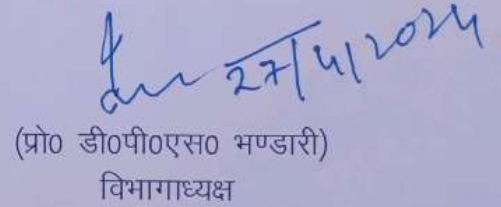 27/4/2024
(प्रो0 डी0पी0एस0 भण्डारी)
विभागाध्यक्ष